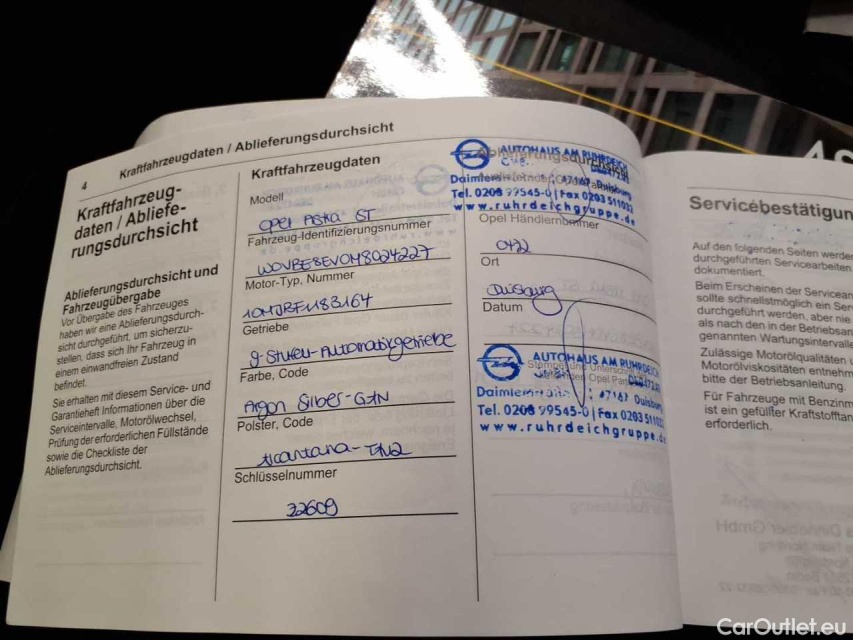 4 Kraftfahrzeugdaten / Ablieferungsdurchsicht
Kraftfahrzeug-
daten / Abliefe-
rungsdurchsicht
Ablieferungsdurchsicht und
Fahrzeugübergabe
Vor Übergabe des Fahrzeuges
haben wir eine Ablieferungsdurch-
sicht durchgeführt, um sicherzu-
stellen, dass sich Ihr Fahrzeug in
einem einwandfreien Zustand
befindet.
Sie erhalten mit diesem Service- und
Garantieheft Informationen über die
Serviceintervalle, Motorölwechsel,
Prüfung der erforderlichen Füllstände
sowie die Checkliste der
Ablieferungsdurchsicht.
Kraftfahrzeugdaten
Modell
Opel Astra ST
Fahrzeug-Identifizierungsnummer
W0VBE8EV0M8024227
Motor-Typ, Nummer
Getriebe
9-Stufen-Automatikgetriebe
Farbe, Code
Argon Silber-G4N
Polster, Code
Alcantara-
Schlüsselnummer
32609
Ablieferungsdurchsicht
AUTOHAUS AM RUHRDEICH
47167 Duisburg
Tel. 0208 99545-0 | Fax 0203 511032
www.ruhrdeichgruppe.de
Opel Händlernummer
Ort
Duisburg
Datum
AUTOHAUS AM RUHRDEICH
47167 Duisburg
Tel. 0208 99545-0 | Fax 0203 511032
www.ruhrdeichgruppe.de
Servicebestätigun
Auf den folgenden Seiten werde
durchgeführten Servicearbeiten
dokumentiert.
Beim Erscheinen der Servicean
sollte schnellstmöglich ein Ser
durchgeführt werden, aber nie
als nach den in der Betriebsan
genannten Wartungsintervalle
Zulässige Motorölqualitäten u
Motorölviskositäten entnehm
bitte der Betriebsanleitung.
Für Fahrzeuge mit Benzinm
ist ein gefüllter Kraftstofftan
erforderlich.
CarOutlet.eu